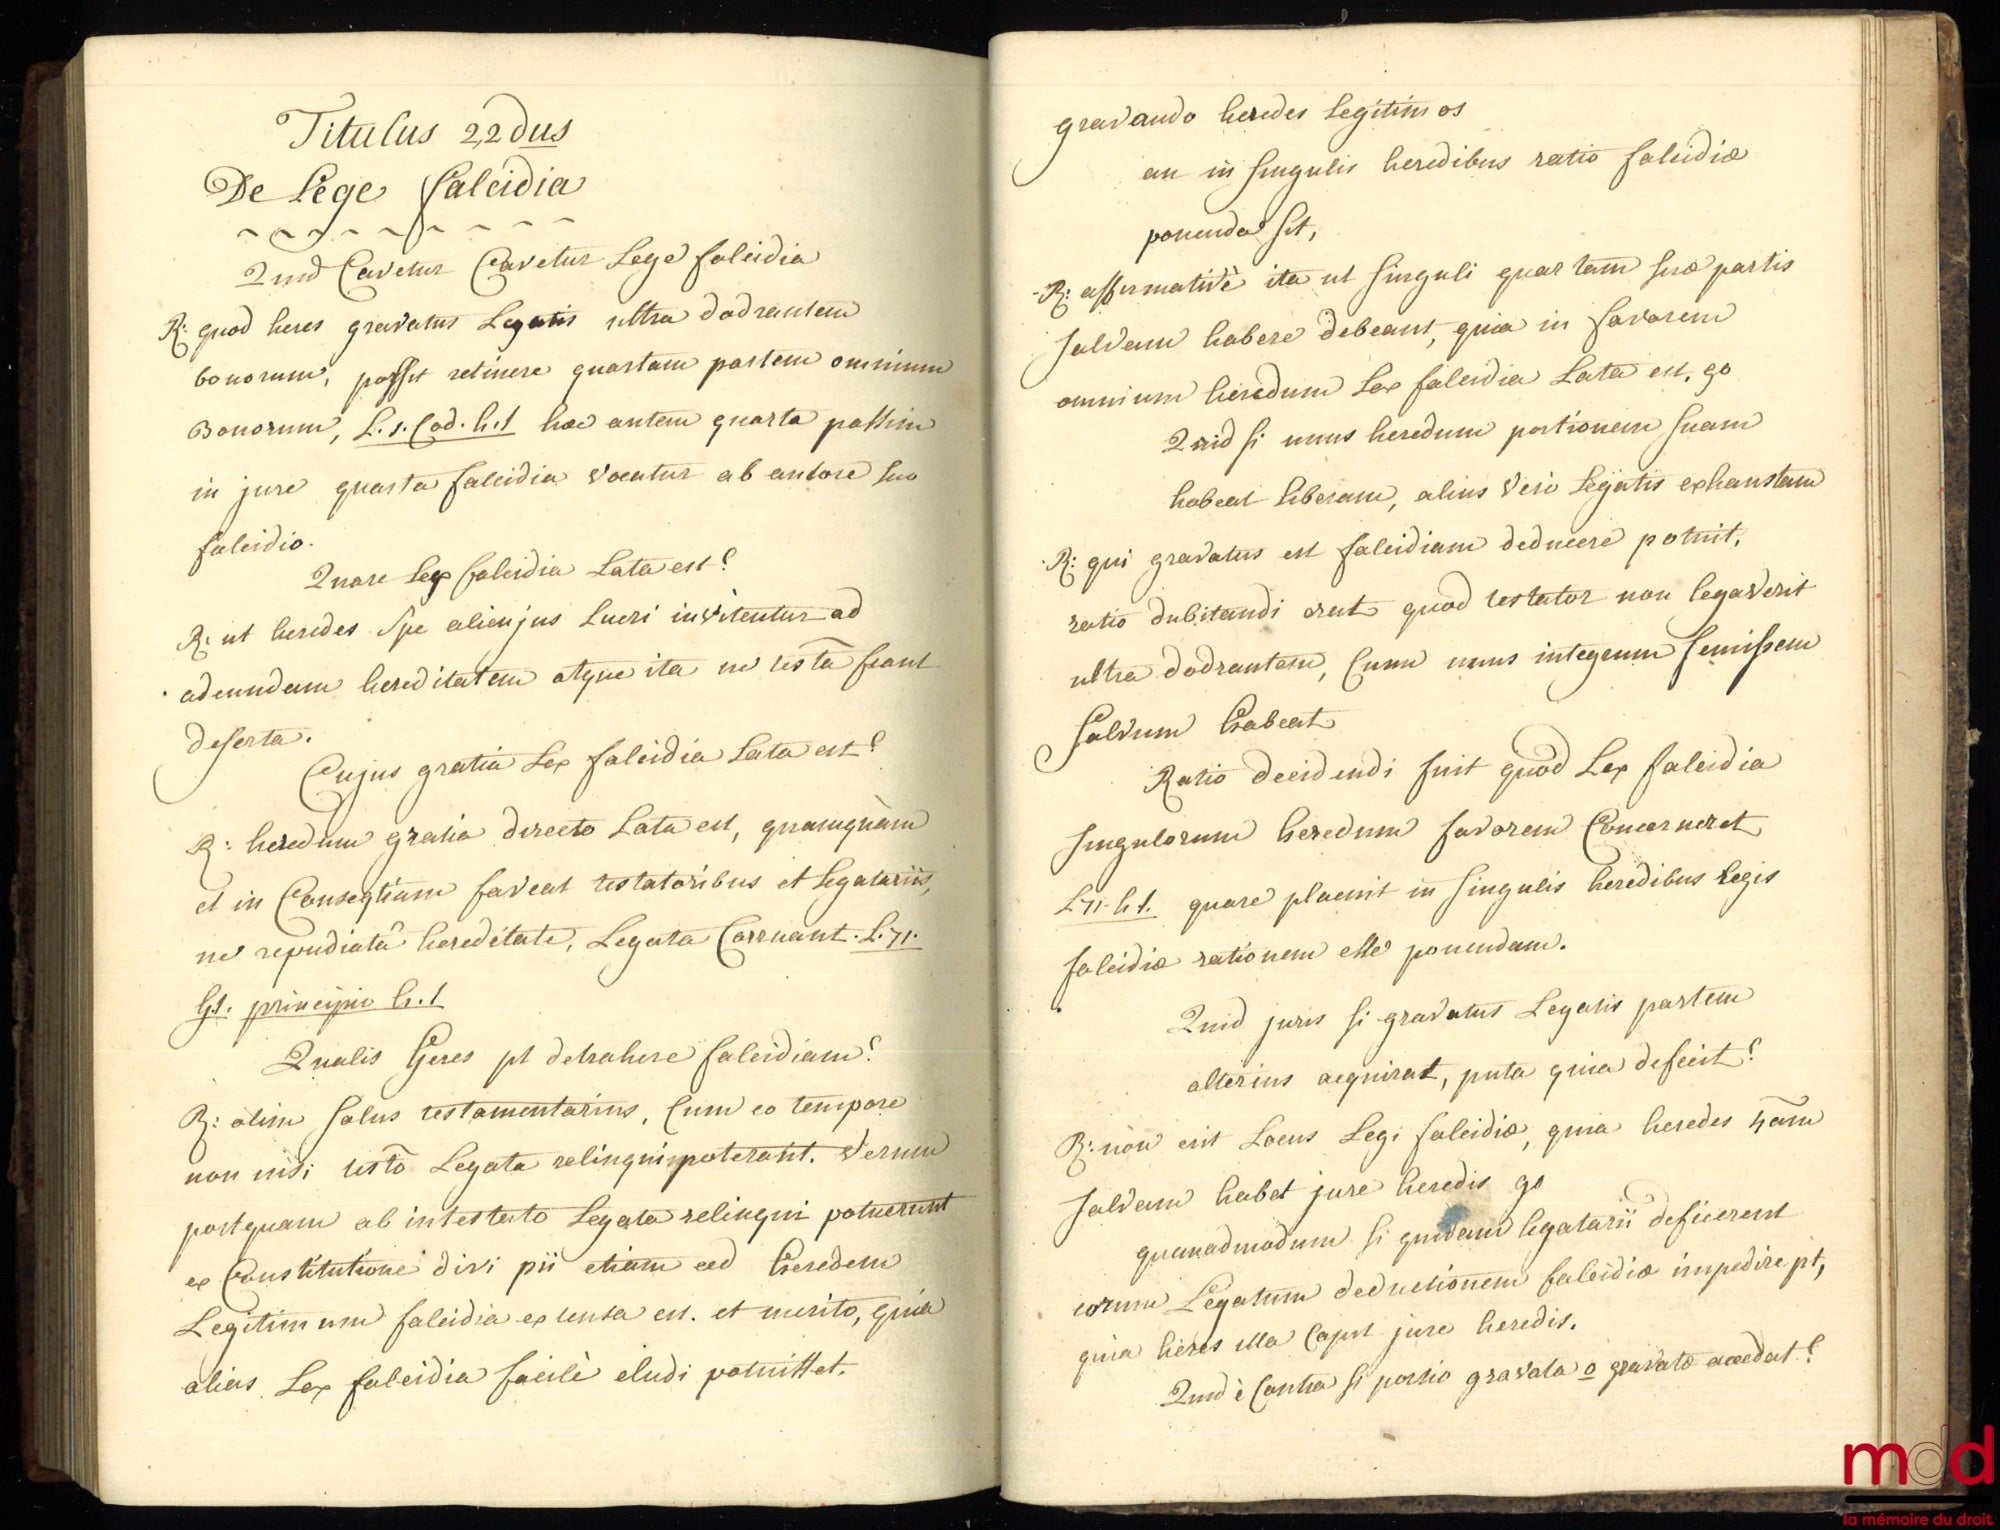 Titulus 22dus
De Lege falcidia
Quid Cavetur Cavetur Lege falcidia
R: quod heres gravatus Legatis ultra dodrantem
bonorum, possit retinere quartam partem omnium
Bonorum, L. 1. Cod. h.t hæc autem quarta passim
in jure quarta falcidia vocatur ab autore suo
falcidio.
Quare Lex falcidia Lata est?
R: ut heredes spe alicujus Lucri invitentur ad
adeundam hereditatem atque ita ne testa fiant
deserta.
Cujus gratia Lex falcidia Lata est?
R: heredum gratia directo Lata est, quamquàm
et in Conseqtiam faveat testatoribus et Legatariis,
ne repudiatâ hereditate, Legata Corruant. L. 71.
principio h.t
Qualis heres pt detrahere falcidiam?
R: olim solus testamentarius, Cum eo tempore
non nisi testo Legata relinqui poterant. Verum
postquam ab intestato Legata relinqui potuerunt
ex Constitutione divi pii etiam ad heredem
Legitimum falcidia extensa est. et merito, quia
alias Lex falcidia facilè eludi potuisset.
gravando heredes Legitimos
an in singulis heredibus ratio falcidiæ
ponenda sit,
R: affirmativè ita ut singuli quartam suæ partis
salvam habere debeant, quia in favorem
omnium heredum Lex falcidia Lata est, go
Quid si unus heredum portionem suam
habeat liberam, alius vero Legatis exhaustam
R: qui gravatus est falcidiam deducere potuit,
ratio dubitandi erat quod testator non legaverit
ultra dodrantem, Cum unus integrum semissem
salvum habeat
Ratio decidendi fuit quod Lex falcidia
singulorum heredum favorem Concerneret
L 71. h t. quare placuit in singulis heredibus Legis
falcidiæ rationem esse ponendam.
Quid juris si gravatus Legatis partem
alterius acquirat, puta quia deficit?
R: non erit Locus Legi falcidiæ, quia heredes 4tam
salvam habet jure heredis go
quemadmodum si quidam legatarii deficerent
eorum Legatum deductionem falcidiæ impedire pt,
quia heres illa Capit jure heredis.
Quid è Contra si portio gravata o gravatæ accedat?
mdd
la mémoire du droit